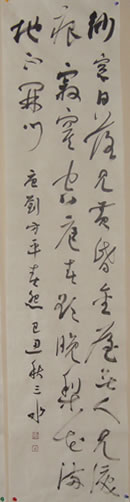 纱窗日落见黄昏金屋无人见泪
痕寂寞空庭春欲晚梨花满
地不开门
唐刘方平春怨己丑秋三水